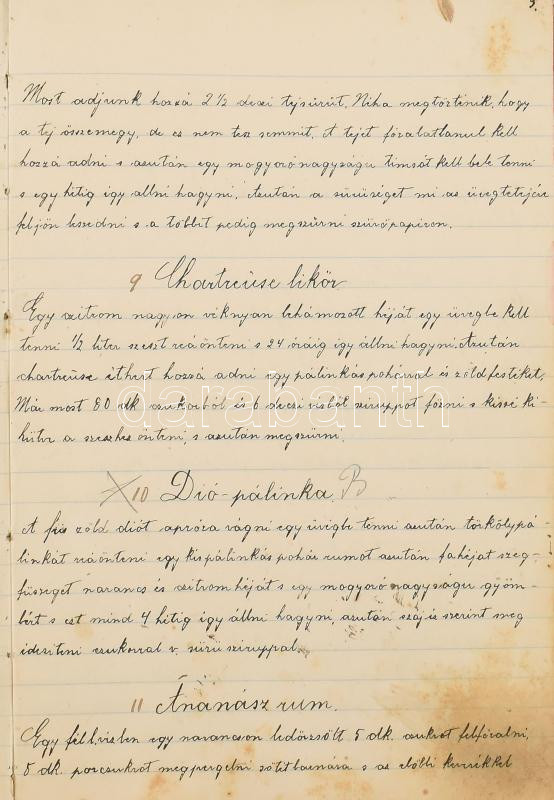 3.
Most adjunk hozzá 2 1/2 deci tejsűrűt. Néha megtörténik, hogy
a tej összemegy, de ez nem tesz semmit. A tejet forralatlanul kell
hozzá adni s azután egy mogyorónagyságu timsót kell bele tenni
s egy hétig így állni hagyni. Azután a sűrűséget mi az üvegtetejére
feljön leszedni s a többit pedig megszűrni szűrőpapiron.
9 Chartreuse likör
Egy citrom nagyon véknyan lehámozott héját egy üvegbe kell
tenni 1/2 liter szeszt reáönteni s 24 óráig így állni hagyni. Azután
chartreuse éthert hozzá adni egy pálinkás pohárral és zöld festéket.
Már most 80 dk cukorból és 6 deci vizből sziruppot főzni s kissé ki-
hűtve a szeszhez önteni, s azután megszűrni.
darabanth
10 Dió-pálinka B
A friss zöld diót apróra vágni egy üvegbe tenni azután törkölypá-
linkát reáönteni egy kis pálinkás pohár rumot azután fahéjat szeg-
fűszeget narancs és citrom héját s egy mogyorónagyságu gyöm-
bért s ezt mind 4 hétig így állni hagyni, azután száj iz szerint meg
édesíteni cukorral v. sűrű sziruppal.
11 Ánanász rum.
Egy fél l. vizben egy narancson ledörzsölt 5 dk. cukrot felforralni,
5 dk. porcukrot megpergelni sötétbarnára s az előbbi keverékkel